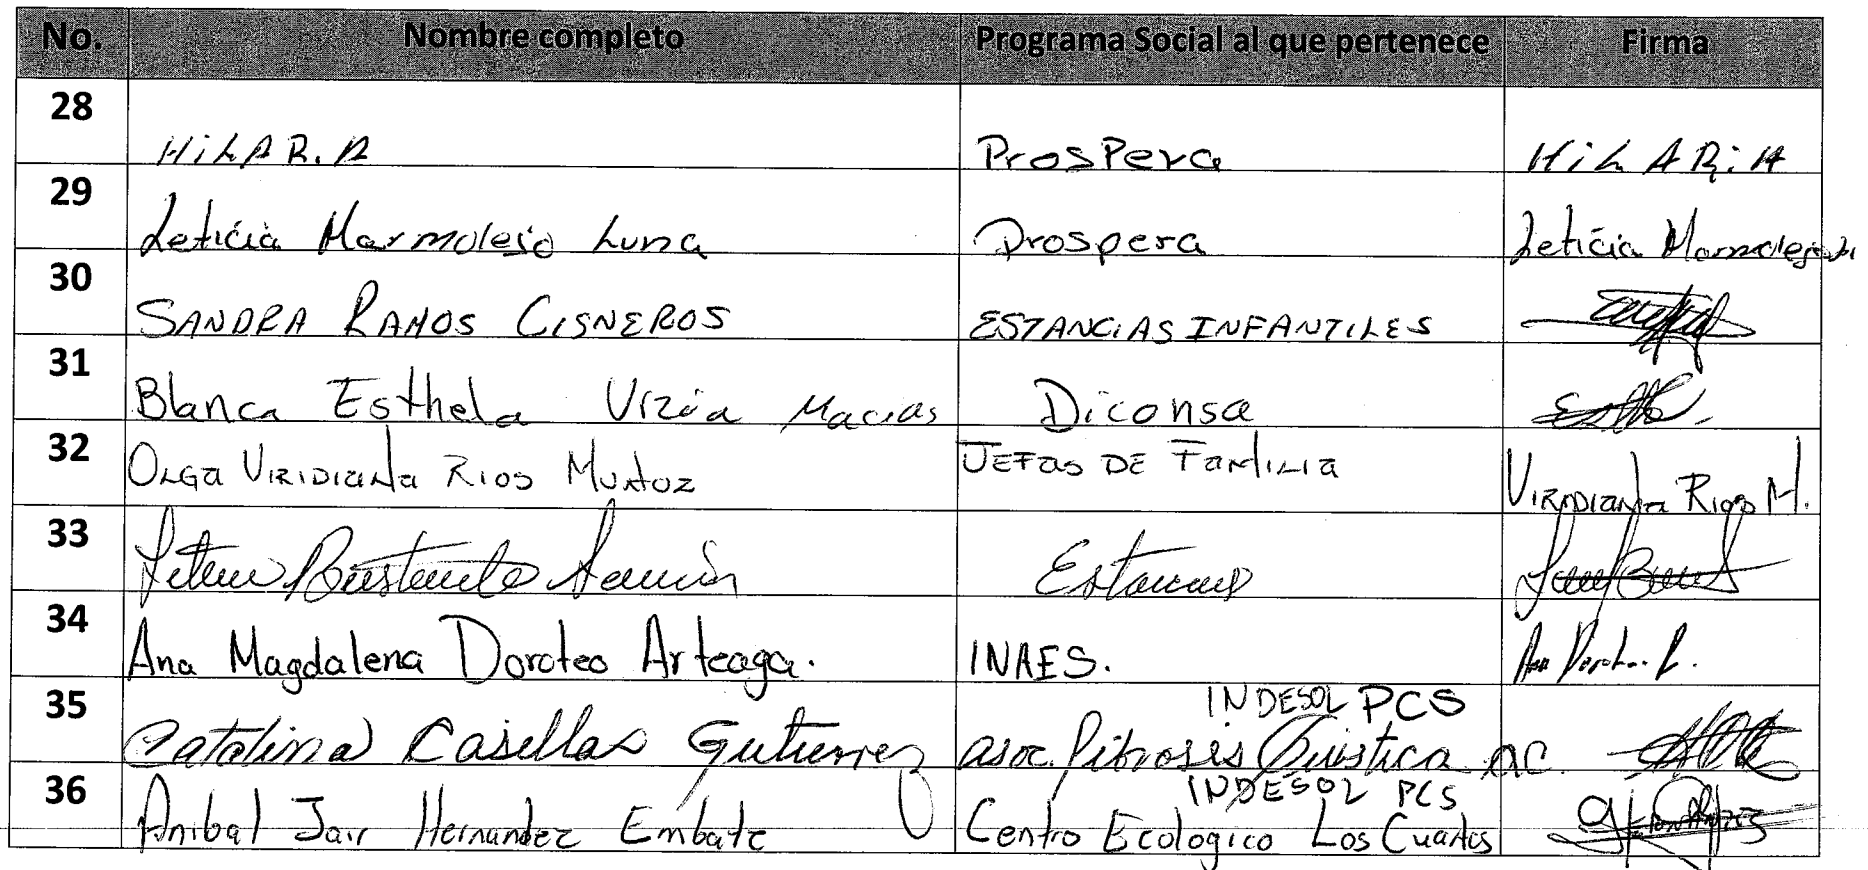 No. Nombre completo Programa Social al que pertenece Firma
28 HiLAR.A Prospera HiLARiA
29 Leticia Marmolejo Luna Prospera Leticia Marmolejo
30 SANDRA RAMOS CISNEROS ESTANCIAS INFANTILES
31 Blanca Esthela Macias Diconsa
32 OLGa VIRIDIANa RIOS MUÑOZ JEFas DE FamILIa VIRIDIANa RIOS M.
33 Bustamante
34 Ana Magdalena Doroteo Arteaga. INAES.
INDESOL PCS
35 Catalina Casillas Gutierrez asoc. fibrosis Quistica AC.
INDESOL PCS
36 Anibal Jair Hernandez Embate Centro Ecologico Los Cuartos